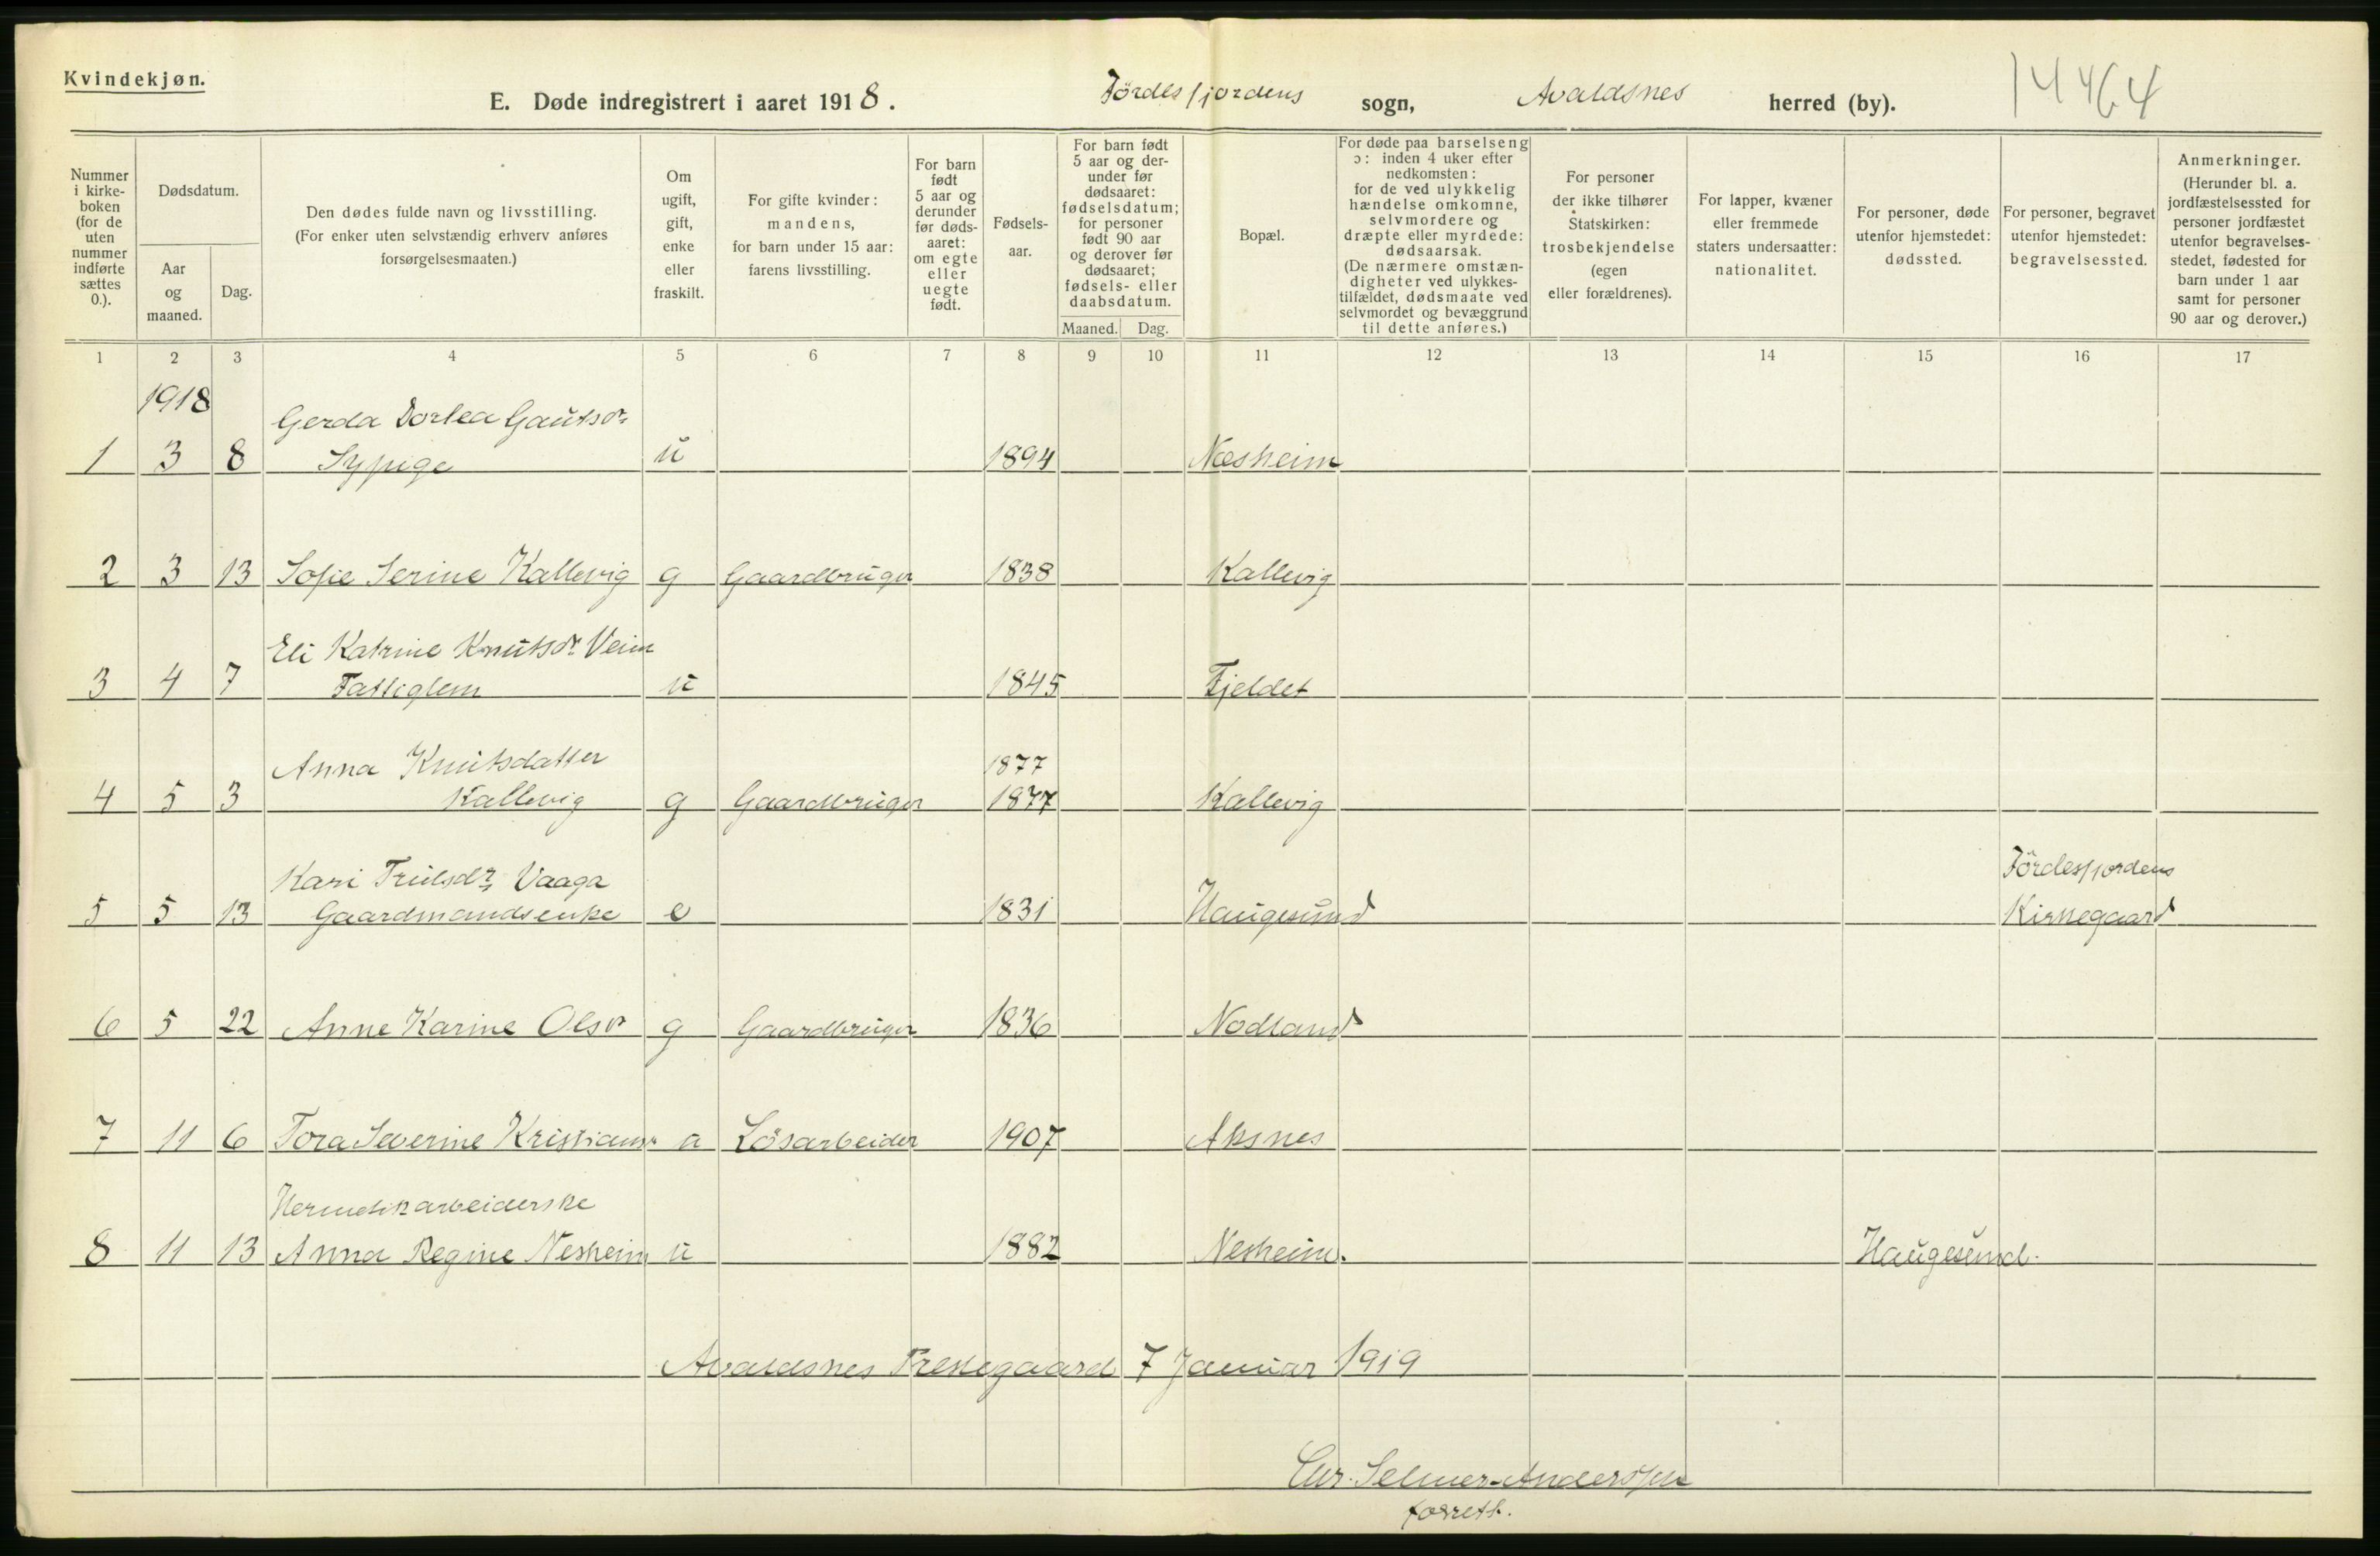 Kvindekjøn.
E. Døde indregistrert i aaret 1918.
Fördesfjordens sogn, Avaldsnes herred (by).
14464
Nummer i kirke-boken (for de uten nummer indførte sættes 0.).
Dødsdatum.
Aar og maaned.
Dag.
Den dødes fulde navn og livsstilling.
(For enker uten selvstændig erhverv anføres forsørgelsesmaaten.)
Om ugift, gift, enke eller fraskilt.
For gifte kvinder: mandens, for barn under 15 aar: farens livsstilling.
For barn født 5 aar og derunder før døds-aaret: om egte eller uegte født.
Fødsels-aar.
For barn født 5 aar og der-under før dødsaaret: fødselsdatum; for personer født 90 aar og derover før dødsaaret; fødsels- eller daabsdatum.
Maaned. Dag.
Bopæl.
For døde paa barselseng ɔ: inden 4 uker efter nedkomsten: for de ved ulykkelig hændelse omkomne, selvmordere og dræpte eller myrdede: dødsaarsak.
(De nærmere omstæn-digheter ved ulykkes-tilfældet, dødsmaate ved selvmordet og bevæggrund til dette anføres.)
For personer der ikke tilhører Statskirken: trosbekjendelse (egen eller forældrenes).
For lapper, kvæner eller fremmede staters undersaatter: nationalitet.
For personer, døde utenfor hjemstedet: dødssted.
For personer, begravet utenfor hjemstedet: begravelsessted.
Anmerkninger.
(Herunder bl. a. jordfæstelsessted for personer jordfæstet utenfor begravelses-stedet, fødested for barn under 1 aar samt for personer 90 aar og derover.)
1 2 3 4 5 6 7 8 9 10 11 12 13 14 15 16 17
1918
Gerda Dortea Gautsdr
1 3 8 Sypige u 1894 Næsheim
2 3 13 Sofie Serine Kallevig g Gaardbruger 1838 Kallevig
Eli Katrine Knutsdr Veim
3 4 7 Fattiglem u 1845 Fjeldet
Anna Knutsdatter 1877
4 5 3 Kallevig g Gaardbruger 1877 Kallevig
Kari Trulsdr Vaaga Fördesfjordens
5 5 13 Gaardmandsenke e 1831 Haugesund Kirkegaard
6 5 22 Anne Karine Olsdr g Gaardbruger 1836 Nodland
7 11 6 Tora Severine Kristiansdr u Lösarbeider 1907 Aksnes
Hermetikarbeiderske
8 11 13 Anna Regine Nesheim u 1882 Nesheim. Haugesund.
Avaldsnes Prestegaard 7 Januar 1919
Chr. Selmer-Anderssen
forrett.